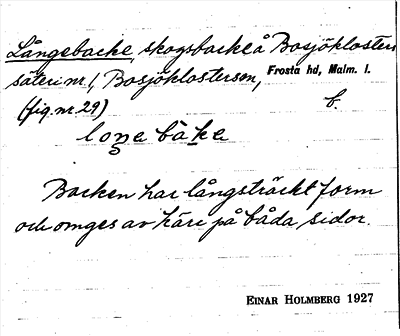 Långebacke, skogsbacke å Bosjöklosters
säteri nr 1, Bosjöklosters sn, Frosta hd, Malm. l.
(fig. nr 29) b.
loŋe bàke
Backen har långsträckt form
och omges av kärr på båda sidor.
EINAR HOLMBERG 1927